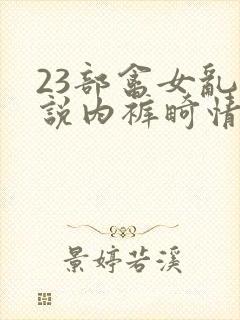 23部畲女乱
說内裤畸情
景婷若溪